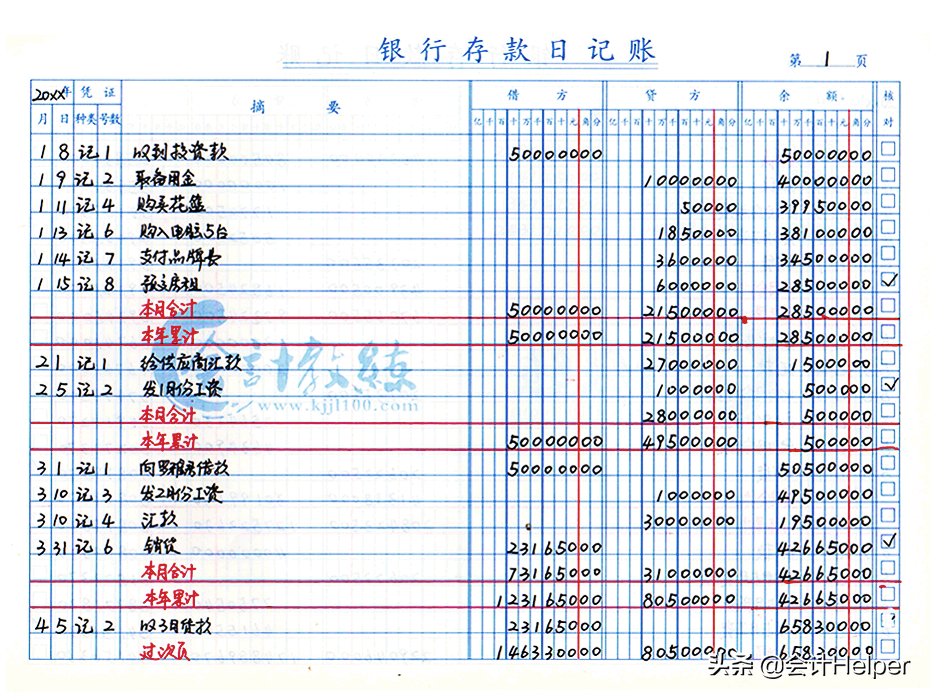 银行存款日记账
第 1 页
20XX年 凭证 摘要 借方 贷方 余额 核对
月 日 种类 号数 亿千百十万千百十元角分 亿千百十万千百十元角分 亿千百十万千百十元角分
1 8 记 1 收到投资款 50000000 50000000
1 9 记 2 取备用金 10000000 40000000
1 11 记 4 购买花篮 50000 39950000
1 13 记 6 购入电脑5台 1850000 38100000
1 14 记 7 支付品牌费 3600000 34500000
1 15 记 8 预交房租 6000000 28500000
本月合计 50000000 21500000 28500000
本年累计 50000000 21500000 28500000
2 1 记 1 给供应商汇款 27000000 1500000
2 5 记 2 发1月份工资 1000000 500000
本月合计 28000000 500000
本年累计 50000000 49500000 500000
3 1 记 1 向罗雅君借款 50000000 50500000
3 10 记 3 发2月份工资 1000000 49500000
3 10 记 4 汇款 30000000 19500000
3 31 记 6 销货 23165000 42665000
本月合计 73165000 31000000 42665000
本年累计 123165000 80500000 42665000
4 5 记 2 收3月货款 23165000 65830000
过次页 146330000 80500000 65830000
会计教练
www.kjjl100.com
头条 @会计Helper